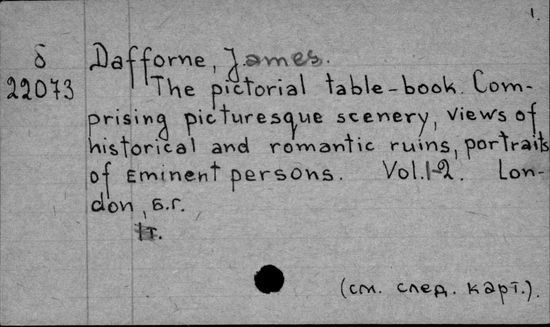 1.
б Dafforne, James.
22073 The pictorial table-book. Com-
prising picturesque scenery, views of
historical and romantic ruins, portraits
of Eminent persons. Vol.1-2. Lon-
don, б.г.
1т.
(см. след. карт.).